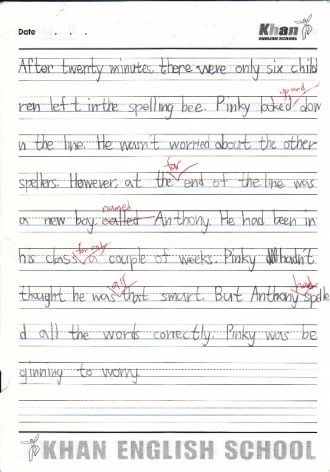 Date . . . .
Khan
ENGLISH SCHOOL
After twenty minutes, there were only six child
up and
ren left in the spelling bee. Pinky looked dow
n the line. He wasn't worried about the other
far
spellers. However, at the end of the line was
named
a new boy called Anthony. He had been in
for only
his class a couple of weeks. Pinky hadn't
all had
thought he was that smart. But Anthony spelle
d all the words correctly. Pinky was be
ginning to worry
KHAN ENGLISH SCHOOL